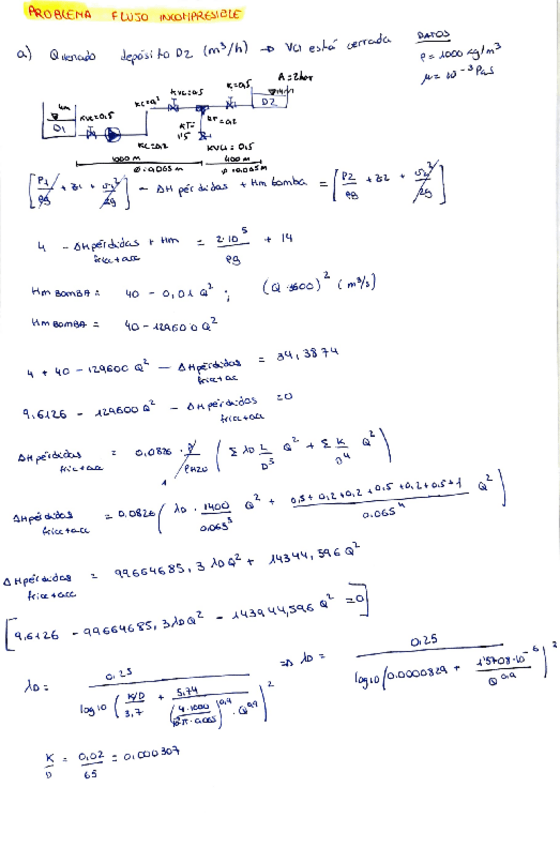 PROBLEMA FLUJO INCOMPRESIBLE
a) Q llenado depósito D2 (m³/h) → VCL está cerrada
DATOS
ρ = 1000 kg/m³
μ = 10⁻³ Pa·s
4m D1 KVL=0,5 KC=0,2 KVL=0,5 K=0,5 A=2bar 14m D2
KC=0,2 KT= 1'5 KT=0,2 KVL=0,5
1000 m 400 m
φ=0,065m φ=0,065m
[P1/ρg + z1 + v1²/2g] - ΔH pérdidas + Hm bomba = [P2/ρg + z2 + v2²/2g]
4 - ΔH pérdidas fricc+acc + Hm = 2·10⁵/ρg + 14
Hm BOMBA = 40 - 0,01 Q² ; (Q·3600)² (m³/s)
Hm BOMBA = 40 - 129600 Q²
4 + 40 - 129600 Q² - ΔH pérdidas fricc+ac = 34,3874
9,6126 - 129600 Q² - ΔH pérdidas fricc+acc = 0
ΔH pérdidas fric+acc = 0,0826 · ρ/ρH2O 1 (Σ λD L/D⁵ Q² + Σ K/D⁴ Q²)
ΔH pérdidas fricc+acc = 0,0826 (λD · 1400/0.065⁵ Q² + 0,5+0,2+0,2+0,5+0,2+0,5+1/0.065⁴ Q²)
ΔH pérdidas fricc+acc = 99664685,3 λD Q² + 14344,596 Q²
[9,6126 - 99664685,3 λD Q² - 143944,596 Q² = 0]
λD = 0,25/log10 (K/D/3,7 + 5,74/(4·1000/10⁻³π·0.065)^0,9 · Q^0,9)² ⇒ λD = 0,25/log10 (0.0000829 + 1'5708·10⁻⁶/Q^0,9)²
K/D = 0,02/65 = 0,000307